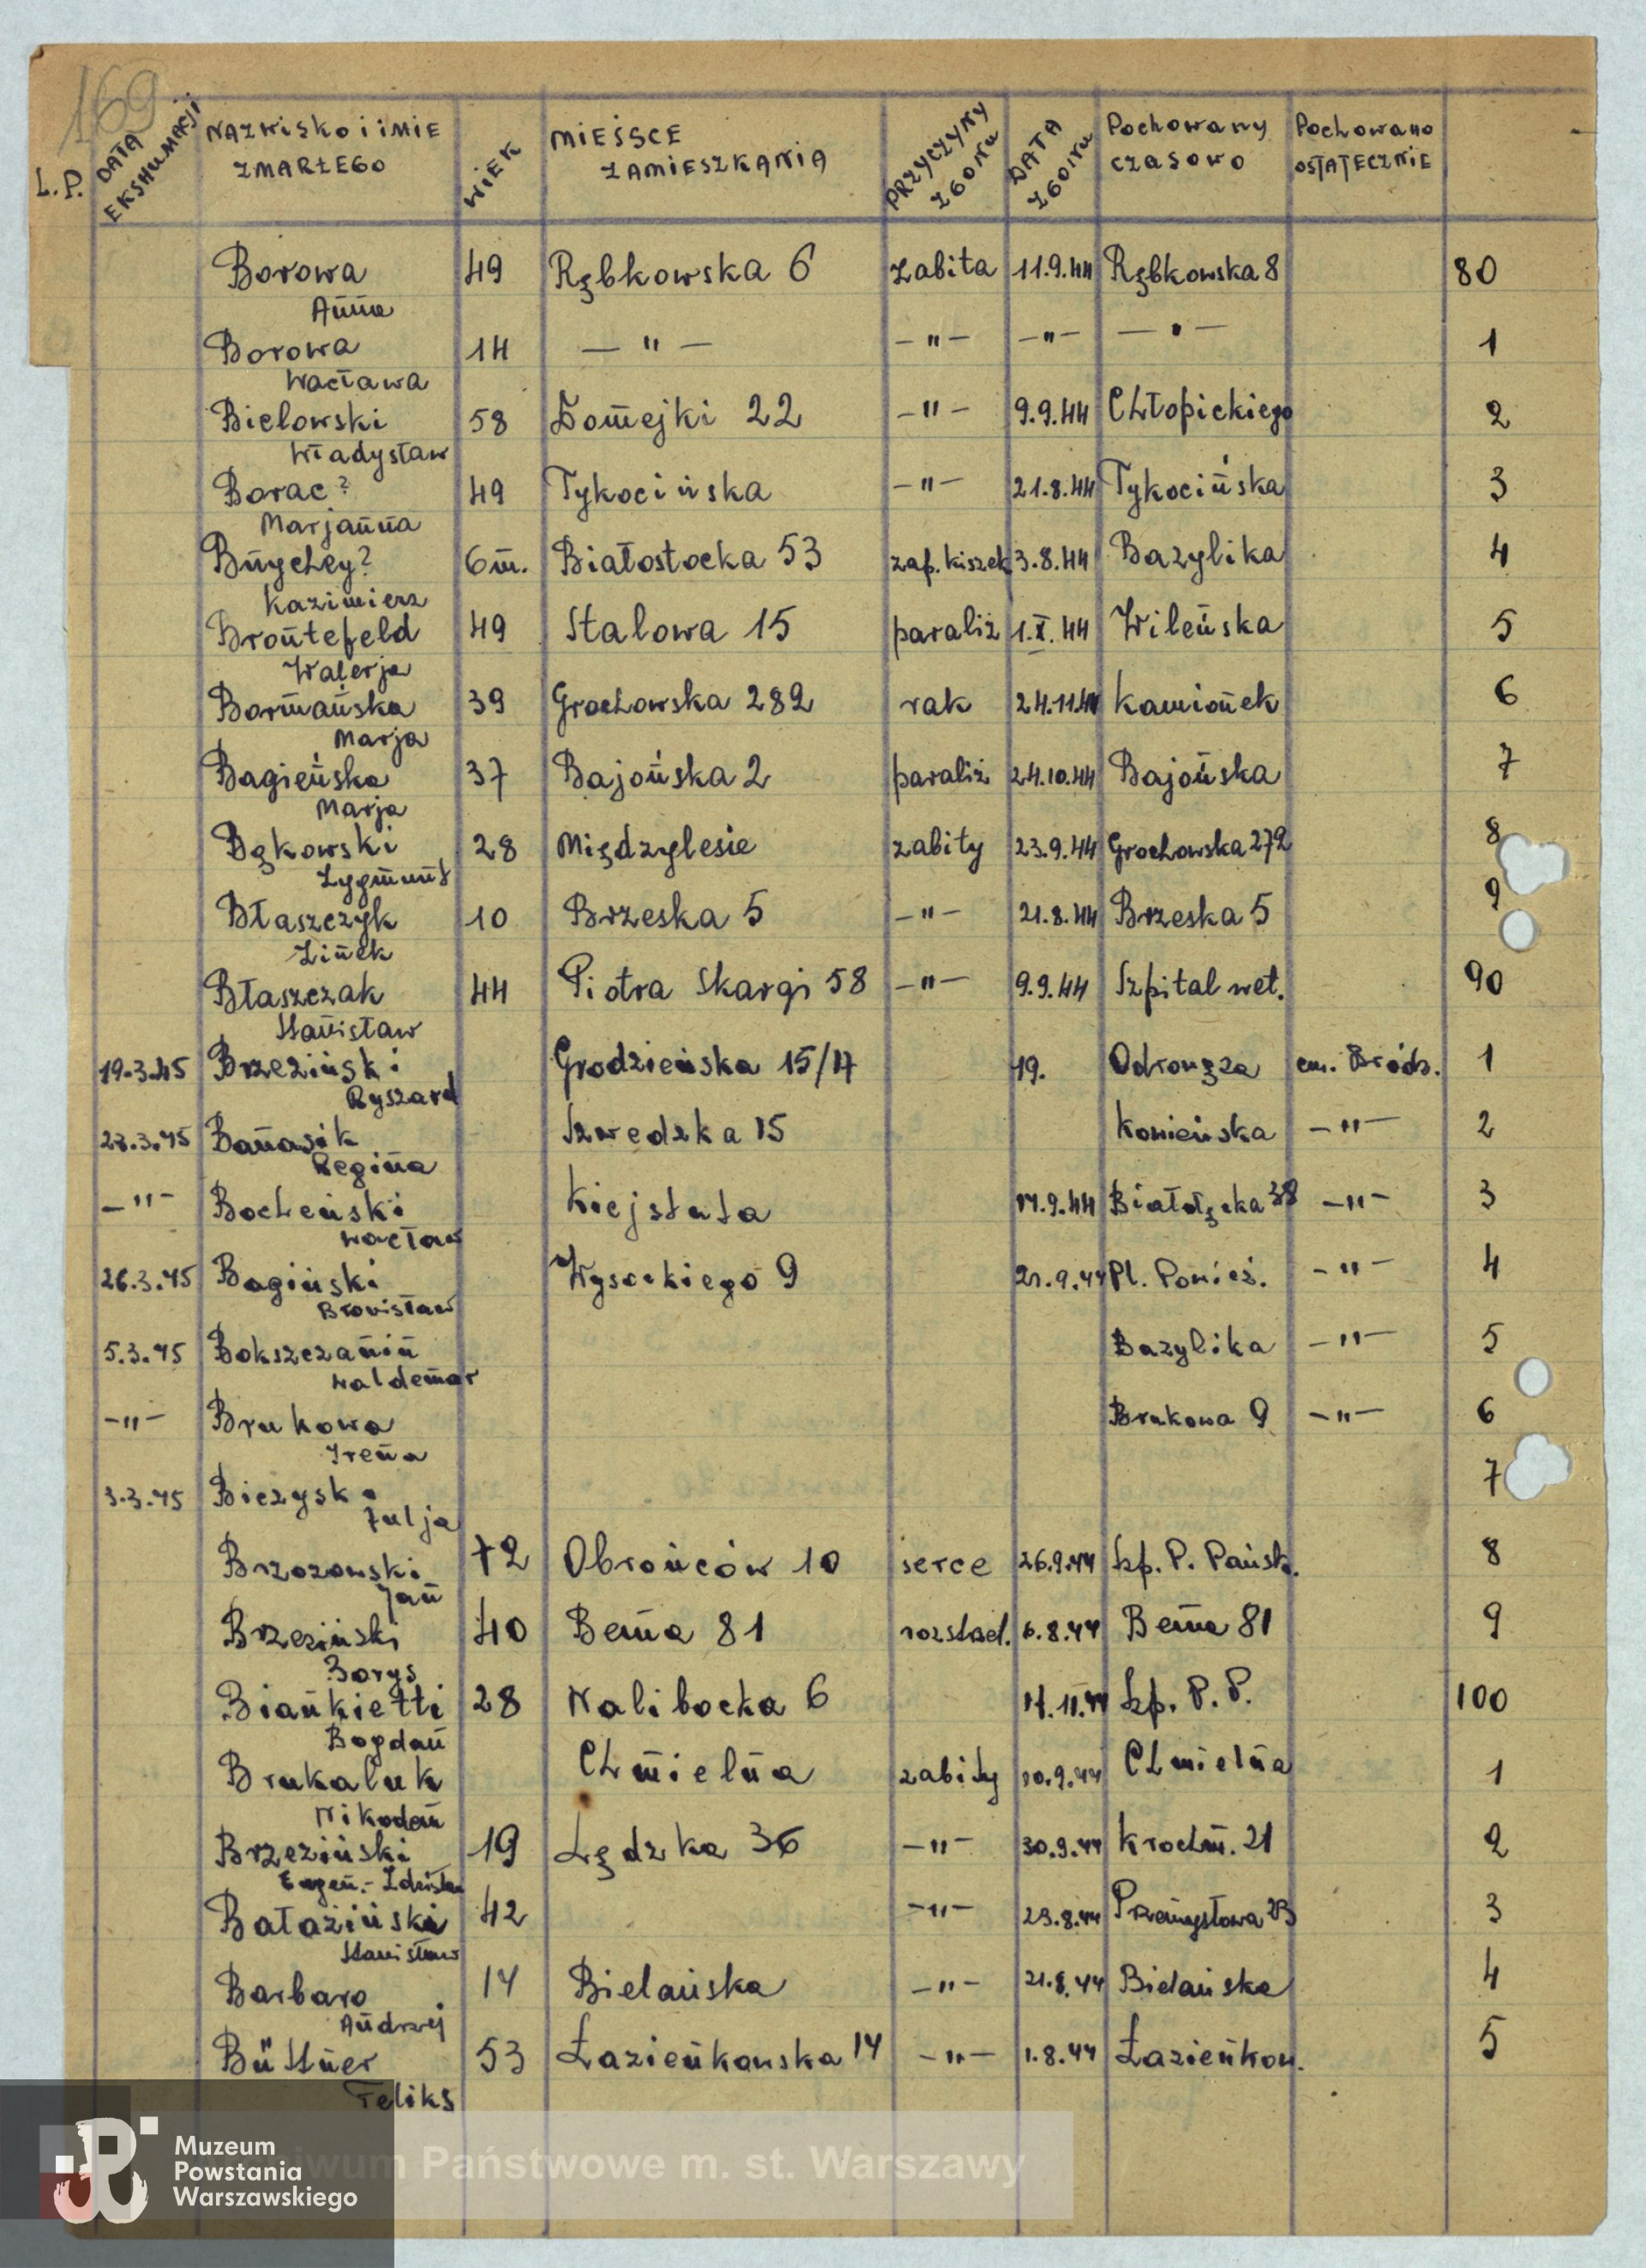 169
L.P. DATA EKSHUMACJI NAZWISKO i IMIE ZMARŁEGO WIEK MIEJSCE ZAMIESZKANIA PRZYCZYNY ZGONU DATA ZGONU Pochowany czasowo Pochowano OSTATECZNIE
Borowa 49 Rębkowska 6 zabita 11.9.44 Rębkowska 8 80
Anna
Borowa 14 — " — — " — — " — — " — 1
Wacława
Bielowski 58 Domejki 22 — " — 9.9.44 Chłopickiego 2
Władysław
Borac? 49 Tykocińska — " — 21.8.44 Tykocińska 3
Marjanna
Bnychey? 6 m. Białostocka 53 zap. kiszek 3.8.44 Bazylika 4
Kazimierz
Brontefeld 49 Stalowa 15 paraliż 1.X.44 Wileńska 5
Walerja
Bormańska 39 Grochowska 282 rak 24.11.44 Kamionek 6
Marja
Bagieńska 37 Bajońska 2 paraliż 24.10.44 Bajońska 7
Marja
Bąkowski 28 Międzylesie zabity 23.9.44 Grochowska 272 8
Zygmunt
Błaszczyk 10 Brzeska 5 — " — 21.8.44 Brzeska 5 9
Zinek
Błaszczak 44 Piotra Skargi 58 — " — 9.9.44 Szpital wet. 90
Stanisław
19.3.45 Brzeziński Grodzieńska 15/17 19. Odrowąża cm. Bródn. 1
Ryszard
23.3.45 Banasik Szwedzka 15 Konieńska — " — 2
Regina
— " — Bocheński Kiejstuta 17.9.44 Białołęcka 38 — " — 3
Wacław
26.3.45 Bagiński Wysockiego 9 21.9.44 Pl. Ponieś. — " — 4
Bronisław
5.3.45 Bokszczanin Bazylika — " — 5
Waldemar
— " — Brukowa Brukowa 9 — " — 6
Irena
3.3.45 Bieżyska 7
Julja
Brzozowski 72 Obrońców 10 serce 26.9.44 Szp. P. Pańsk. 8
Jan
Brzeziński 40 Bema 81 rozstrzel. 6.8.44 Bema 81 9
Borys
Biankietti 28 Nalibocka 6 17.11.44 Szp. P. P. 100
Bogdan
Brukaluk Chmielna zabity 10.9.44 Chmielna 1
Nikodem
Brzeziński 19 Lędzka 36 — " — 30.9.44 Krochm. 21 2
Eugen.-Zdzisław
Bałaziński 42 — " — 23.8.44 Przemysłowa 23 3
Stanisław
Barbaro 14 Bielańska — " — 21.8.44 Bielańska 4
Andrzej
Büttner 53 Łazienkowska 14 — " — 1.8.44 Łazienkow. 5
Feliks
Muzeum
Powstania
Warszawskiego
iwum Państwowe m. st. Warszawy